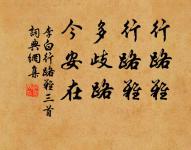 行路難
行路難
多歧路
今安在
李白行路難三首
詞典網集